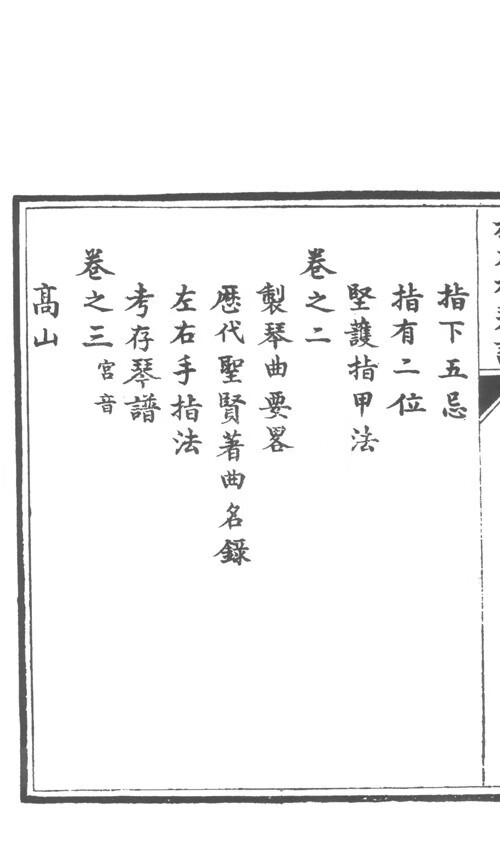 指下五忌
指有二位
堅護指甲法
卷之二
製琴曲要畧
歷代聖賢著曲名錄
左右手指法
考存琴譜
卷之三 宮音
髙山